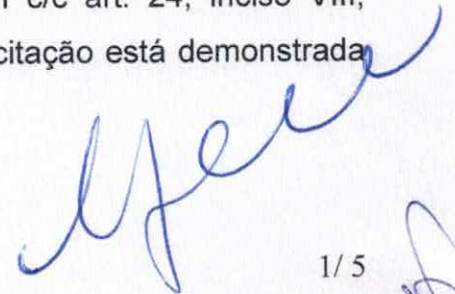 c/c art. 24, inciso VIII,
citação está demonstrada
1/ 5